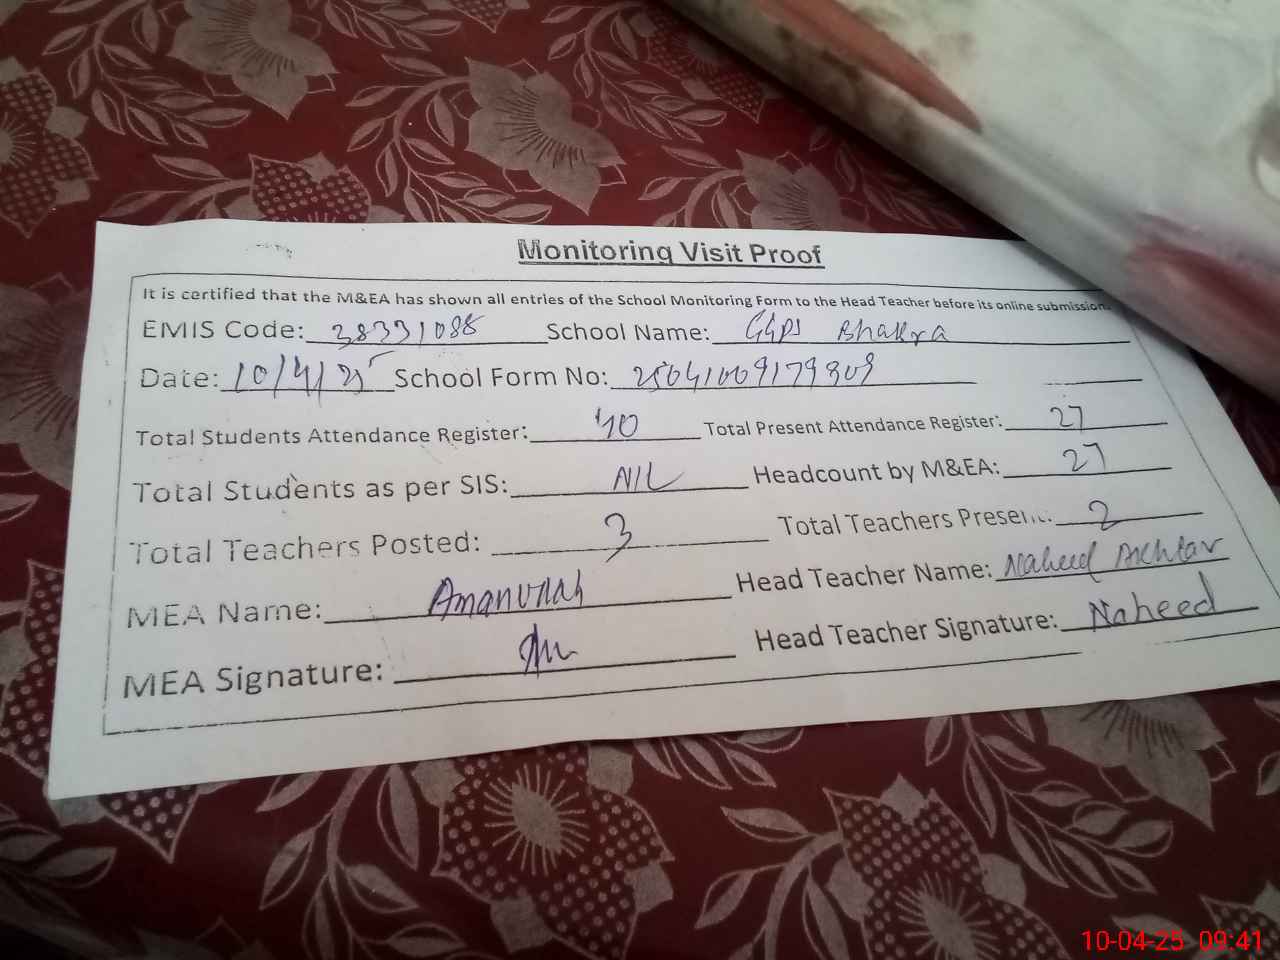 Monitoring Visit Proof
It is certified that the M&EA has shown all entries of the School Monitoring Form to the Head Teacher before its online submission.
EMIS Code: 38331088 School Name: GGPS Bhakra
Date: 10/4/25 School Form No: 25041009179309
Total Students Attendance Register: 40 Total Present Attendance Register: 27
Total Students as per SIS: NIL Headcount by M&EA: 27
Total Teachers Posted: 3 Total Teachers Present: 2
MEA Name: Amanullah Head Teacher Name: Naheed Akhtar
MEA Signature: Head Teacher Signature: Naheed
10-04-25 09:41